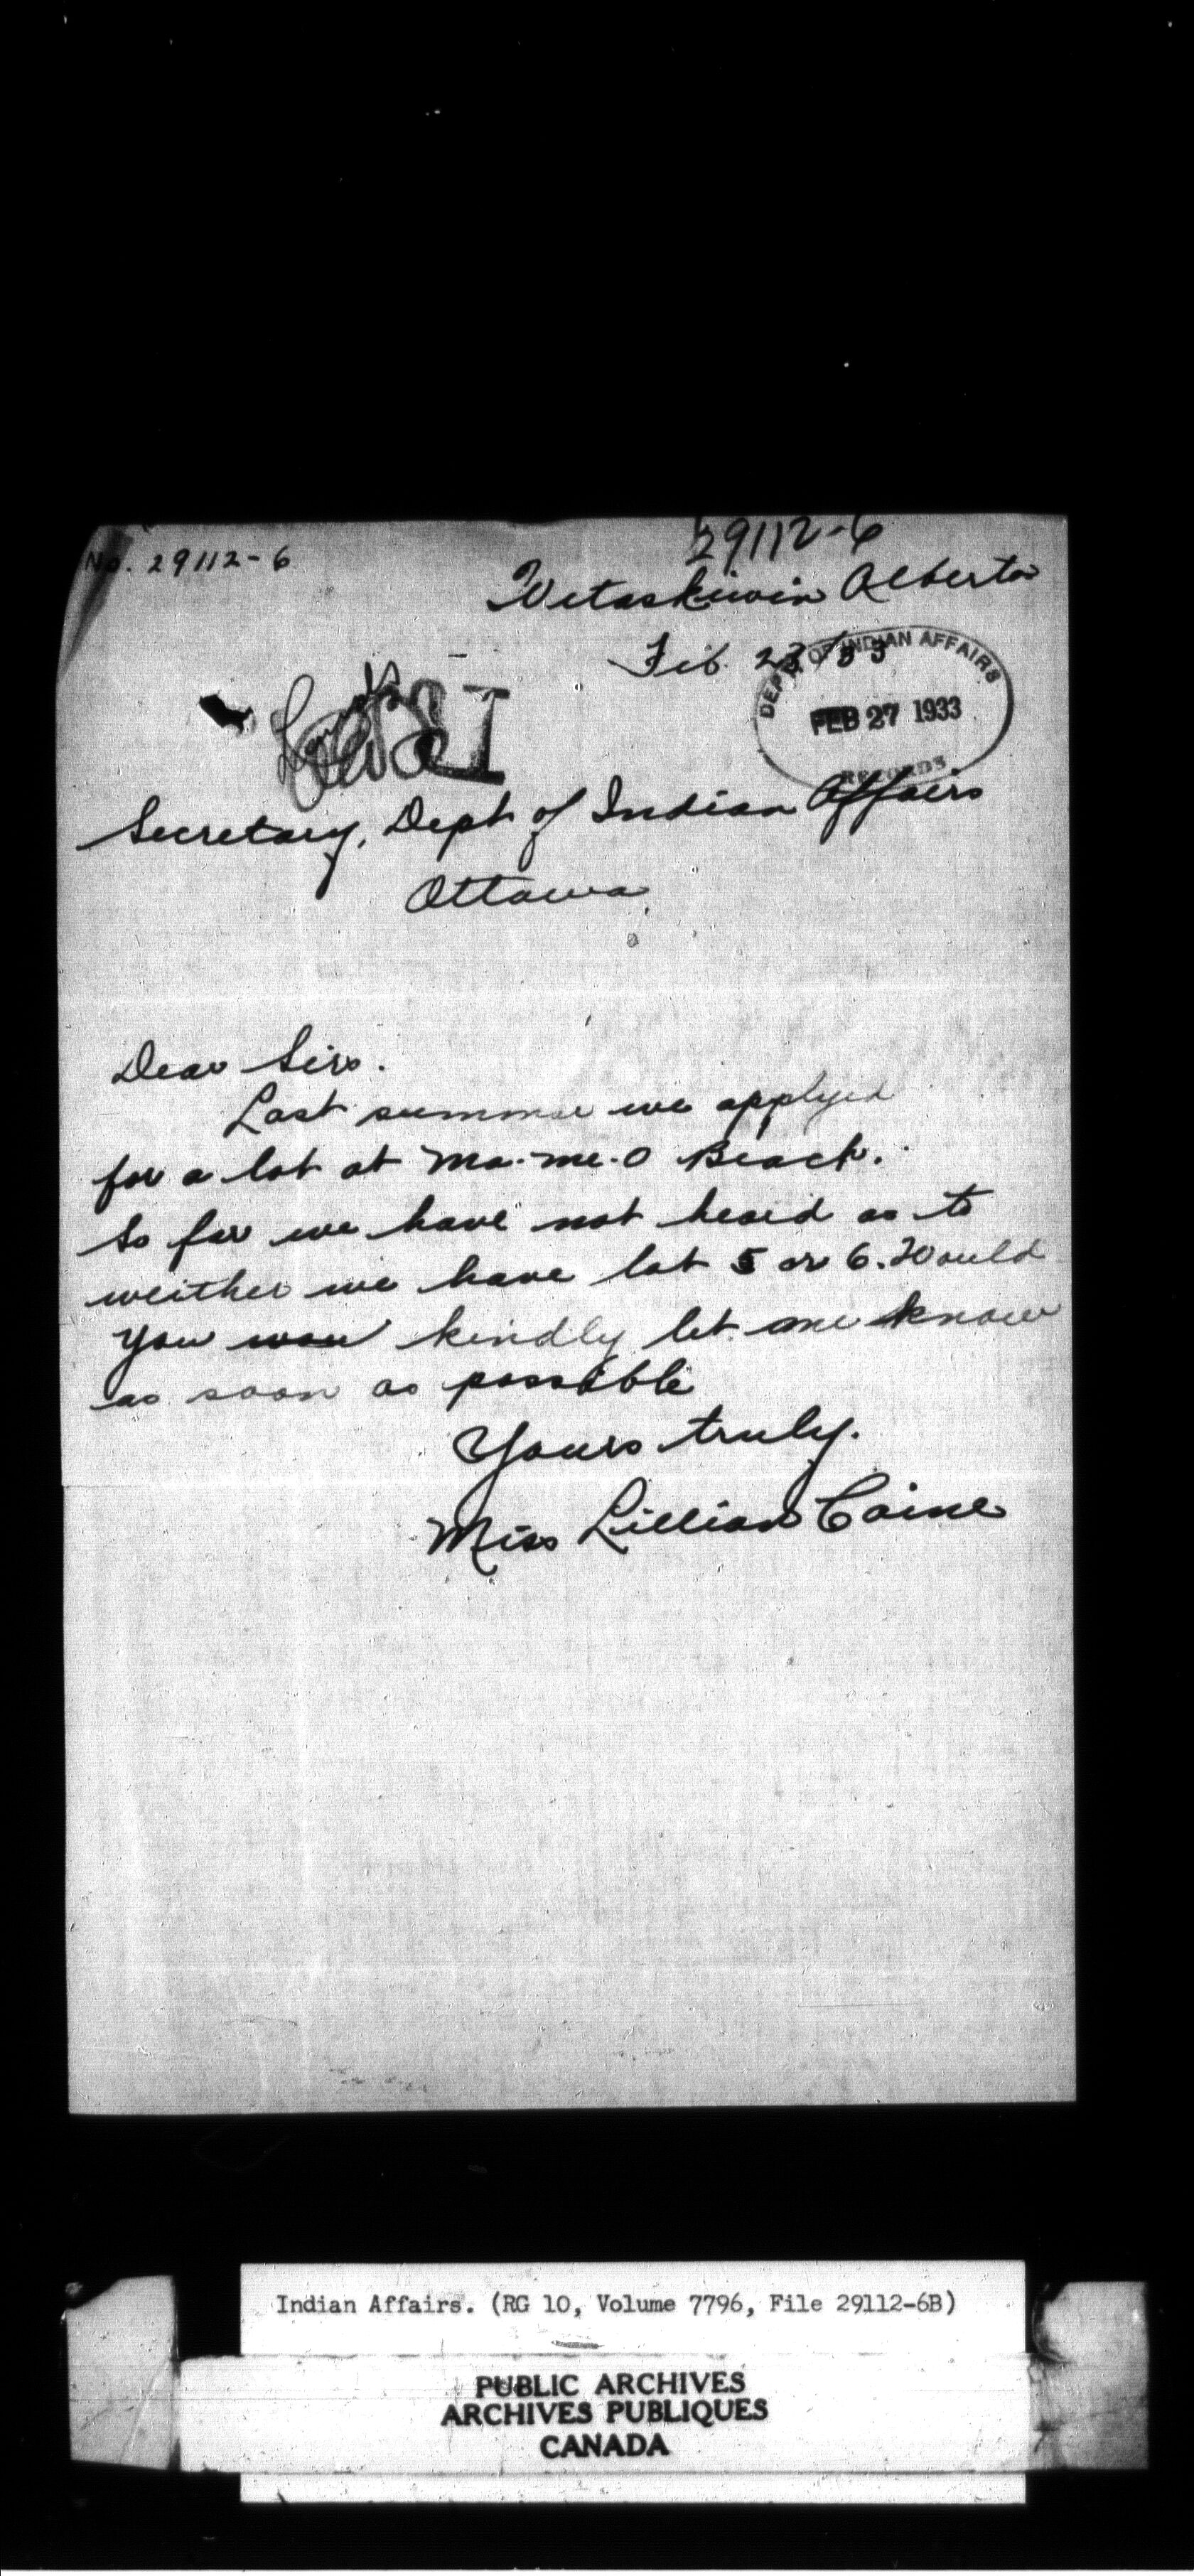 No. 29112-6
29112-6
Wetaskiwin Alberta
Feb. 23/33
DEPT. OF INDIAN AFFAIRS
FEB 27 1933
RECORDS
Secretary, Dept of Indian Affairs
Ottawa.
Dear Sirs.
Last summer we applyed
for a lot at Ma-me-O Beach.
So far we have not heard as to
weither we have lot 5 or 6. Would
you kindly let me know
as soon as possible
Yours truly.
Miss Lillian Caine
Indian Affairs. (RG 10, Volume 7796, File 29112-6B)
PUBLIC ARCHIVES
ARCHIVES PUBLIQUES
CANADA